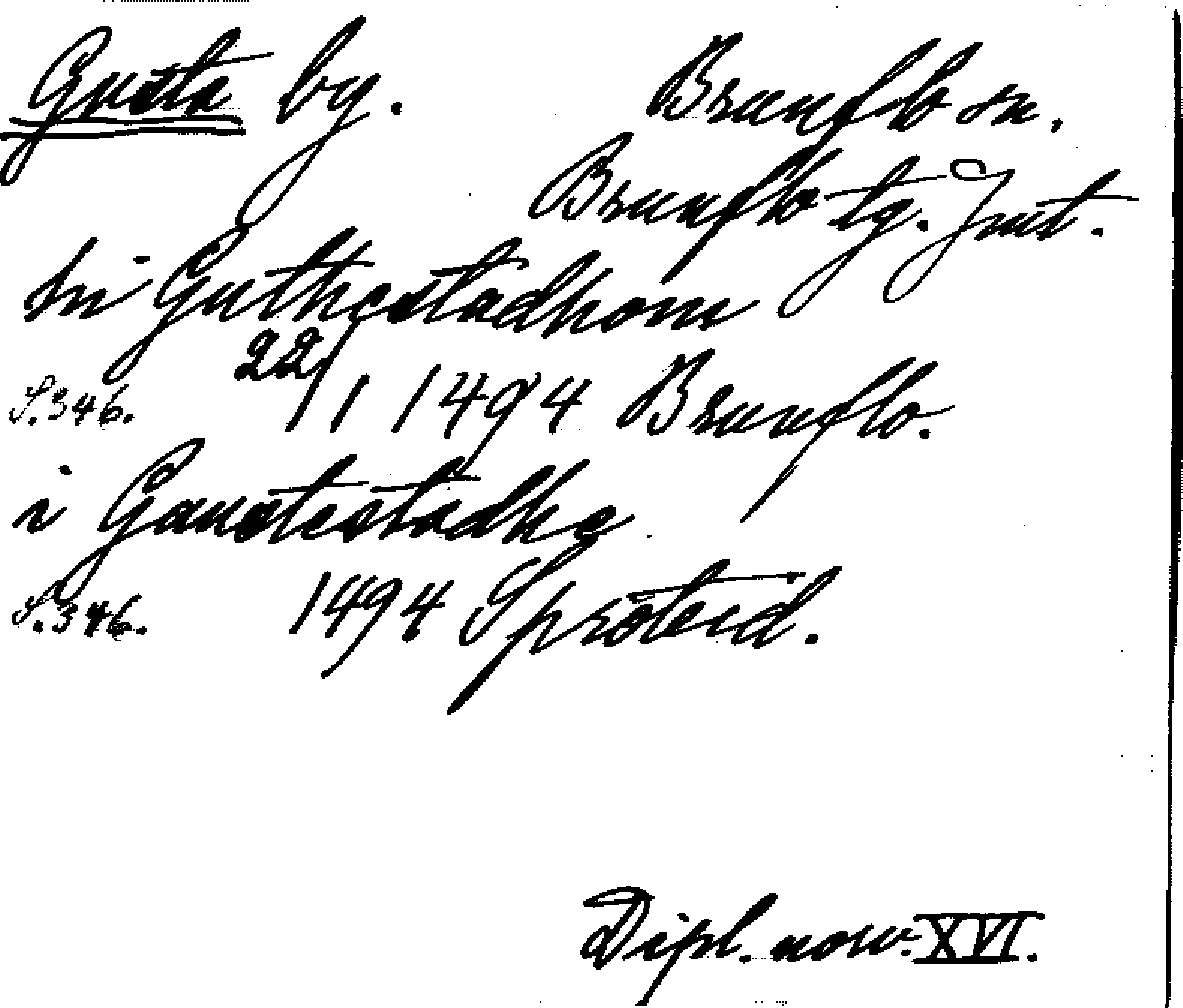 Gusta by. Brunflo sn.
Brunflo tg. Jmt.
hi Guthestadhom
S. 346. 22/1 1494 Brunflo.
i Gaustestadhe
S. 346. 1494 Språteid.
Dipl. norv. XVI.